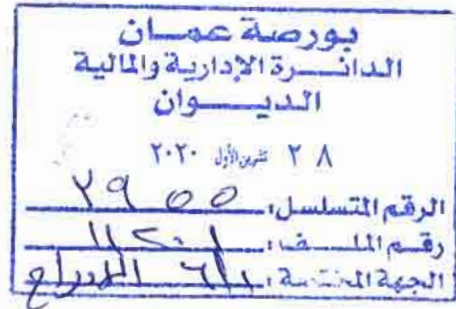 بورصة عمان
الدائرة الإدارية والمالية
الديوان
٢٨ تشرين الأول ٢٠٢٠
الرقم المتسلسل: ٢٩٥٥
رقم الملف:
الجهة المختصة: الإدراج